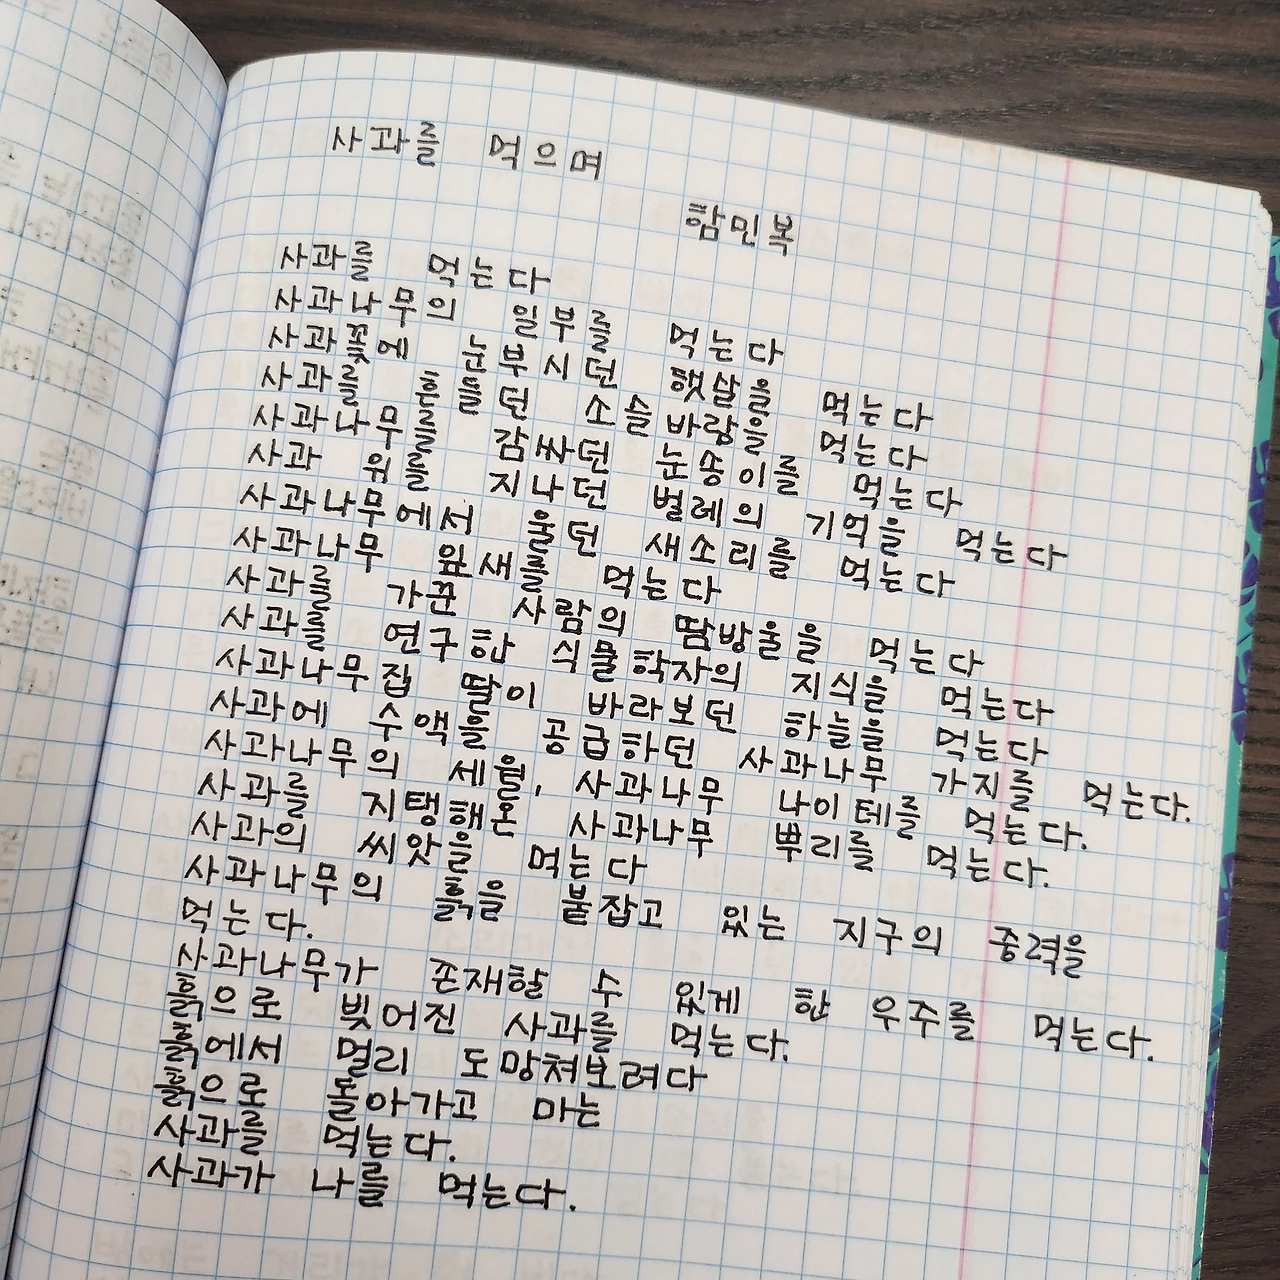 사과를 먹으며
함민복
사과를 먹는다
사과나무의 일부를 먹는다
사과꽃에 눈부시던 햇살을 먹는다
사과를 흔들던 소슬바람을 먹는다
사과나무를 감싸던 눈송이를 먹는다
사과 위를 지나던 벌레의 기억을 먹는다
사과나무에서 울던 새소리를 먹는다
사과나무 잎새를 먹는다
사과를 가꾼 사람의 땀방울을 먹는다
사과를 연구한 식물학자의 지식을 먹는다
사과나무집 딸이 바라보던 하늘을 먹는다
사과에 수액을 공급하던 사과나무 가지를 먹는다.
사과나무의 세월, 사과나무 나이테를 먹는다.
사과를 지탱해온 사과나무 뿌리를 먹는다.
사과의 씨앗을 먹는다
사과나무의 흙을 붙잡고 있는 지구의 중력을
먹는다.
사과나무가 존재할 수 있게 한 우주를 먹는다.
흙으로 빚어진 사과를 먹는다.
흙에서 멀리 도망쳐보려다
흙으로 돌아가고 마는
사과를 먹는다.
사과가 나를 먹는다.